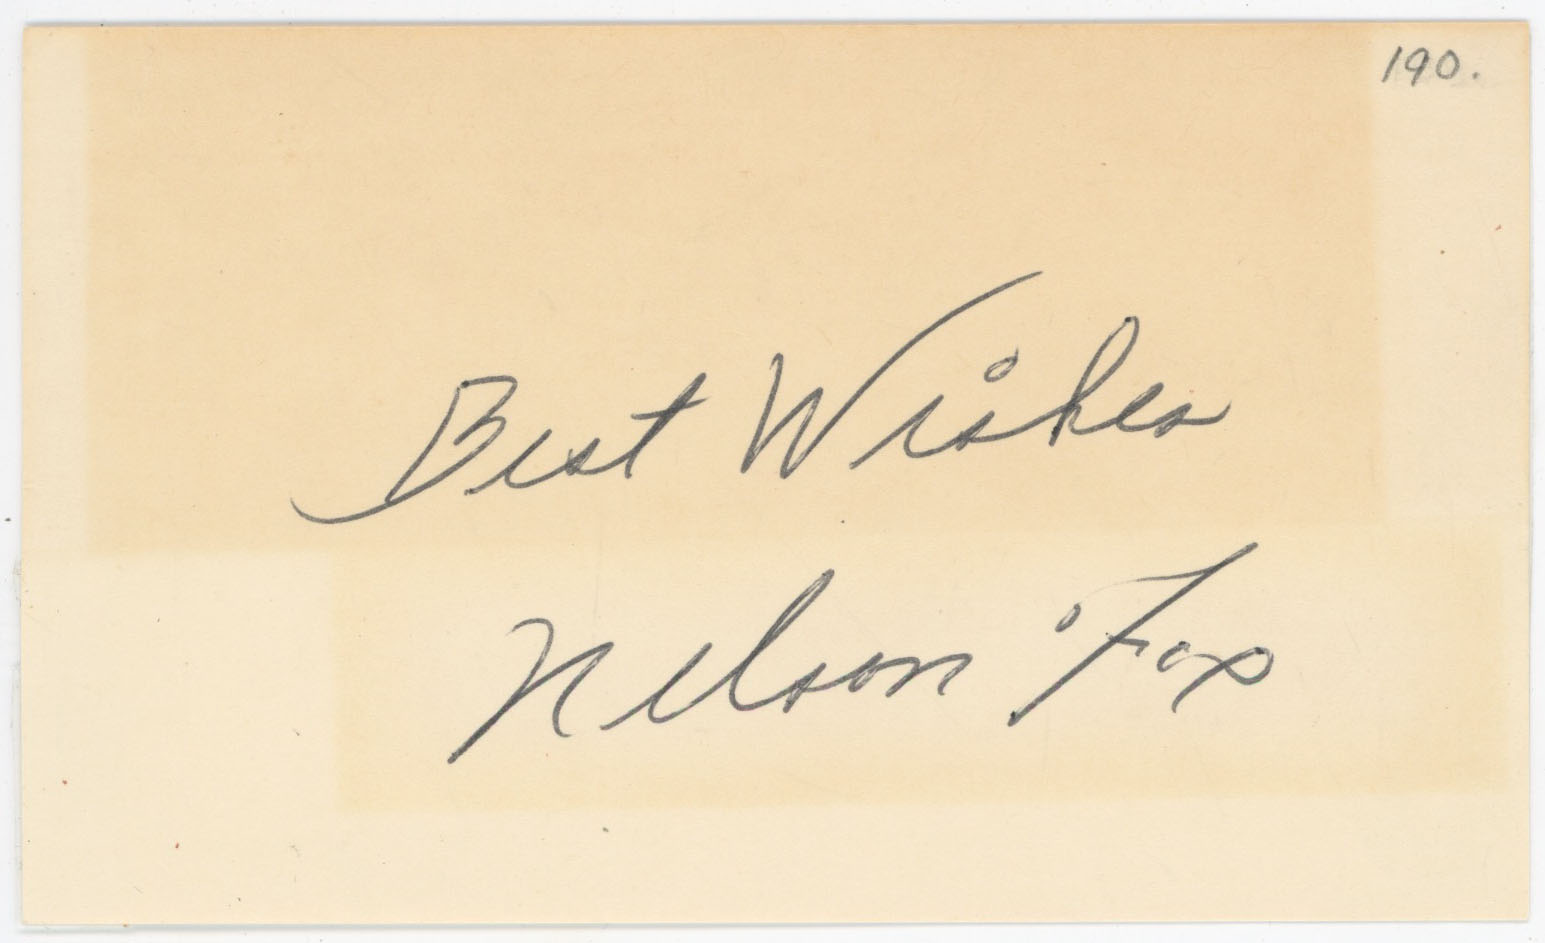 190.
Best Wishes
Nelson Fox